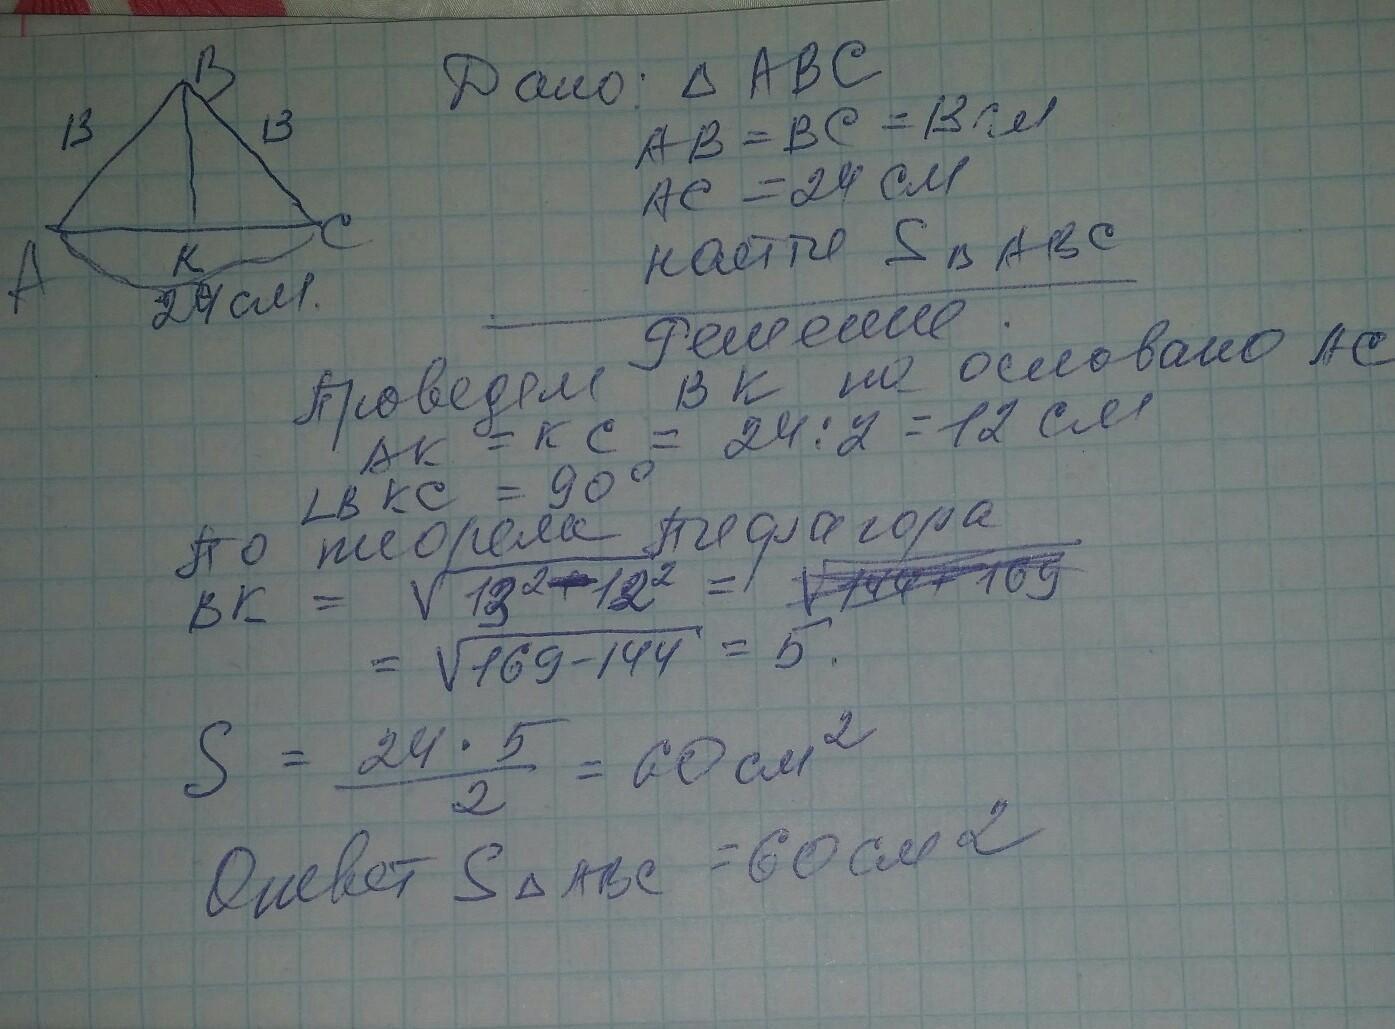 B
13
13
A
K
C
24 см.
Дано: △ ABC
AB = BC = 13 см
AC = 24 см
найти S△ ABC
Решение
Проведем BK на основано AC
AK = KC = 24:2 = 12 см
∠BKC = 90°
По теорема Пифагора
BK = √13²-12² =
= √169-144 = 5.
S = 24·5/2 = 60 см²
Ответ S△ ABC = 60 см2